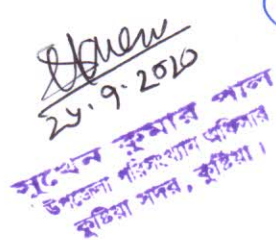 ২৮.৯.2020
সুখেন কুমার পাল
উপজেলা পরিসংখ্যান অফিসার
কুষ্টিয়া সদর, কুষ্টিয়া।